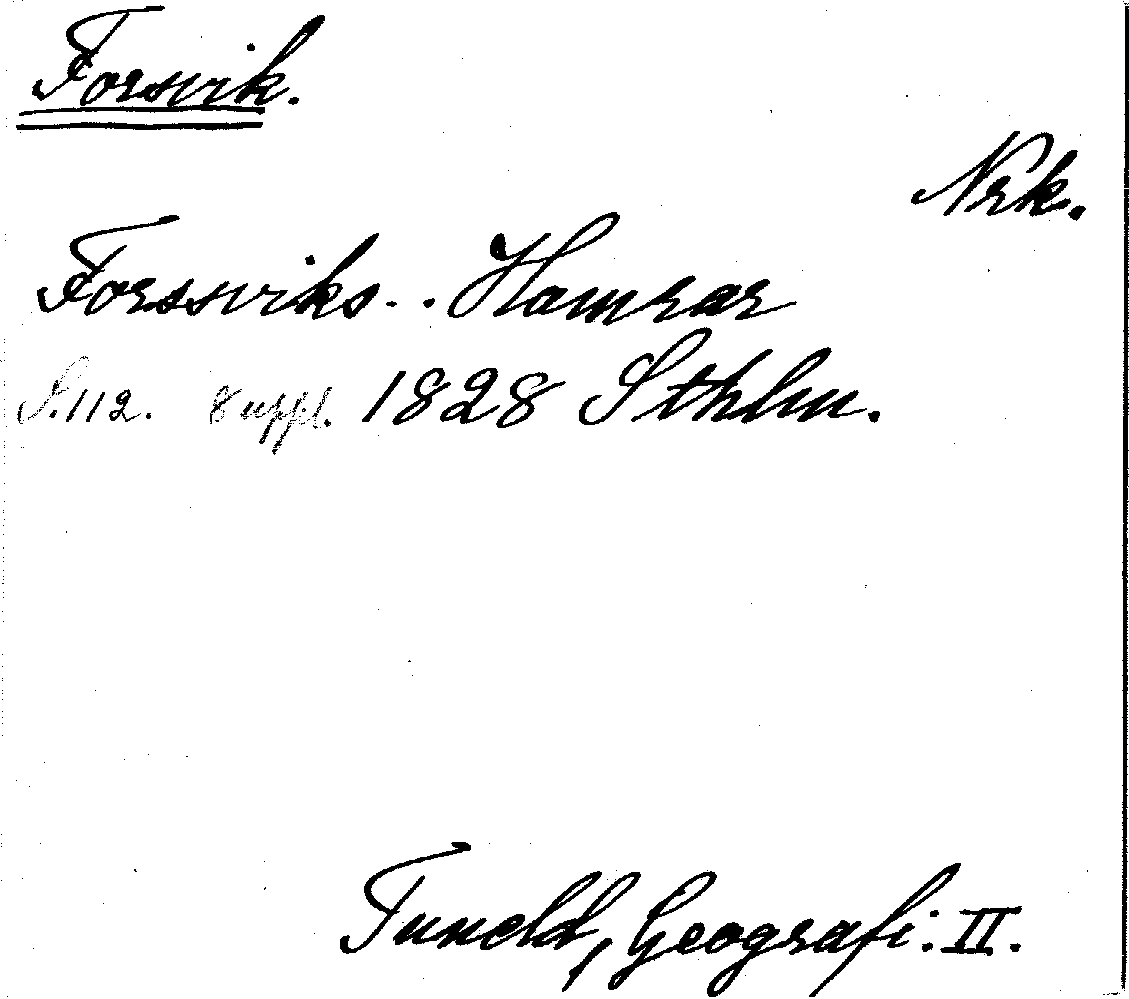 Forsvik.
Nrk.
Forssviks- . Hamrar
S. 112. 8 uppl. 1828 Sthlm.
Tuneld, Geografi. II.